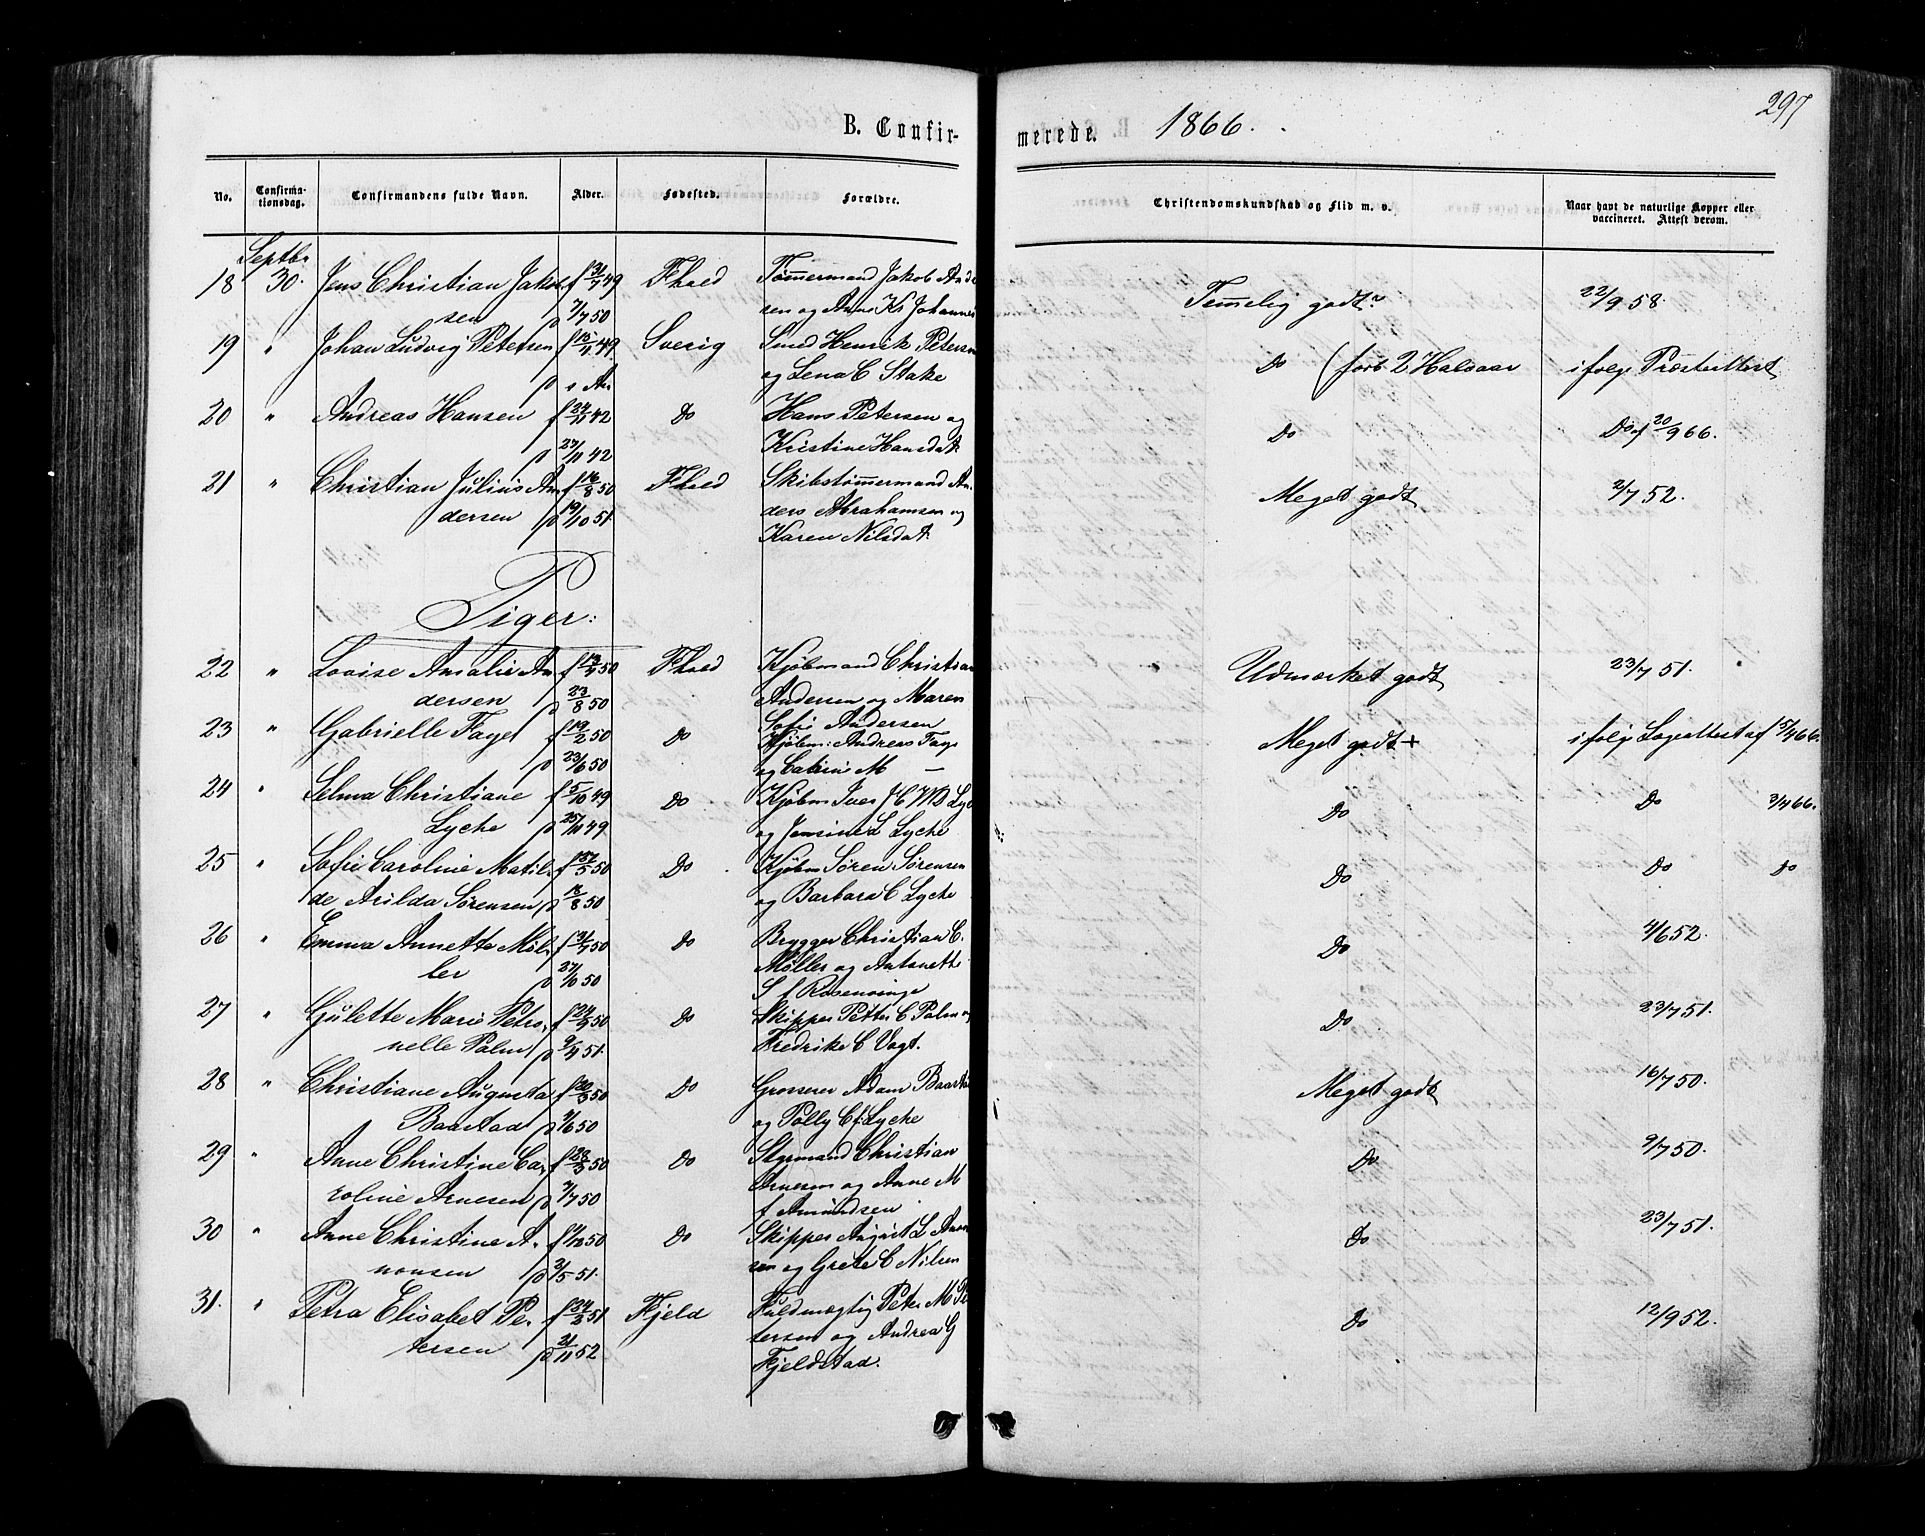 297
B. Confir-
merede. 1866.
No.
Confirma-
tionsdag.
Confirmandens fulde Navn.
Alder.
Fødested.
Forældre.
Christendomskundskab og Flid m. v.
Naar havt de naturlige Kopper eller
vaccineret. Attest derom.
Septbr
18 30. Jens Christian Jakob- f 31/7 49 Fhald Tømmermand Jakob Ander
sen p 7/7 50 sen og Anne Ks Johannes
Temmelig godt 22/9 58.
19 " Johan Ludvig Petersen f 49 Sverig Smed Henrik Petersen
p s A. og Lena C Stake
Do (forb 2 Halvaar ifølge Præsteattest
20 " Andreas Hansen f 24/11 42 Do Hans Petersen og
p 27/11 42 Kristine Hansdat
Do Do af 20/9 66.
21 " Christian Julius An- f 16/8 50 Fhald Skibstømmermand An-
dersen p 19/10 51. ders Abrahamsen og
Karen Nilsdat
Meget godt 2/7 52.
Piger:
22 " Lovise Amalie An- f 50 Fhald Kjøbmand Christian
dersen p 23/8 50 Andersen og Maren
Sofie Andersen
Udmærket godt 23/7 51.
23 " Gabrielle Faye f 19/2 50 Do Kjøbm: Andreas Faye
p 23/6 50 og Catrine M —
Meget godt + ifølge Lægeattest af 5/4 66.
24 " Selma Christiane f 5/10 49 Do Kjøbm Iver J C W B Lyche
Lyche p 25/10 49 og Jensine L Lyche
Do Do 3/4 66.
25 " Sofie Caroline Matil- f 17/5 50 Do Kjøbm Søren Sørensen
de Arilda Sørensen p 18/8 50 og Barbara C Lyche
Do Do Do
26 " Emma Annette Møl- f 31/7 50 Do Brygger Christian C.
ler p 27/10 50 Møller og Antonette
S f Rosenvinge
Do 4/6 52.
27 " Gulette Marie Petro- f 50 Do Skipper Petter C Palm og
nelle Palm p 9/4 51. Fredrike C Vogt.
Do 23/7 51.
28 " Christiane Augusta f 20/3 50 Do Grosserer Adam Baastad
Baastad p 7/6 50 og Polly C f: Lyche
Meget godt 16/7 50.
29 " Anne Christine Ca- f 23/3 50 Do Styrmand Christian
roline Arnesen p 7/7 50 Arnesen og Anne M
f Amundsen
Do 9/7 50.
30 " Anne Christine A- f 1/12 50 Do Skipper August L Anon
nonsen p 3/5 51. sen og Grete C Nilsen
Do 23/7 51.
31. " Petra Elisabet Pe- f 24/2 51 Fjeld Fuldmægtig Peter M Pe
tersen p 21/11 52 tersen og Andrea G
Fjeldstad.
Do 12/9 52.